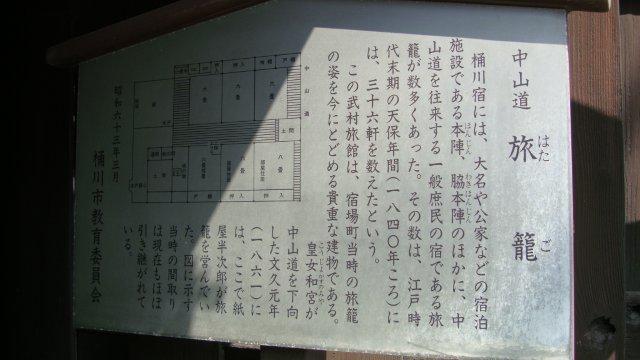 中山道 旅籠
はた ご
桶川宿には、大名や公家などの宿泊
施設である本陣、脇本陣のほかに、中
ほんじん わきほんじん
山道を往来する一般庶民の宿である旅
籠が数多くあった。その数は、江戸時
代末期の天保年間(一八四〇年ころ)に
は、三十六軒を数えたという。
この武村旅館は、宿場町当時の旅籠
の姿を今にとどめる貴重な建物である。
皇女和宮が
中山道を下向
した文久元年
(一八六一)に
は、ここで紙
屋半次郎が旅
籠を営んでい
た。図に示す
当時の間取り
は現在もほぼ
引き継がれて
いる。
中山道
押入
戸棚
八畳
八畳
土間
八畳
押入
昭和六十三年三月
桶川市教育委員会